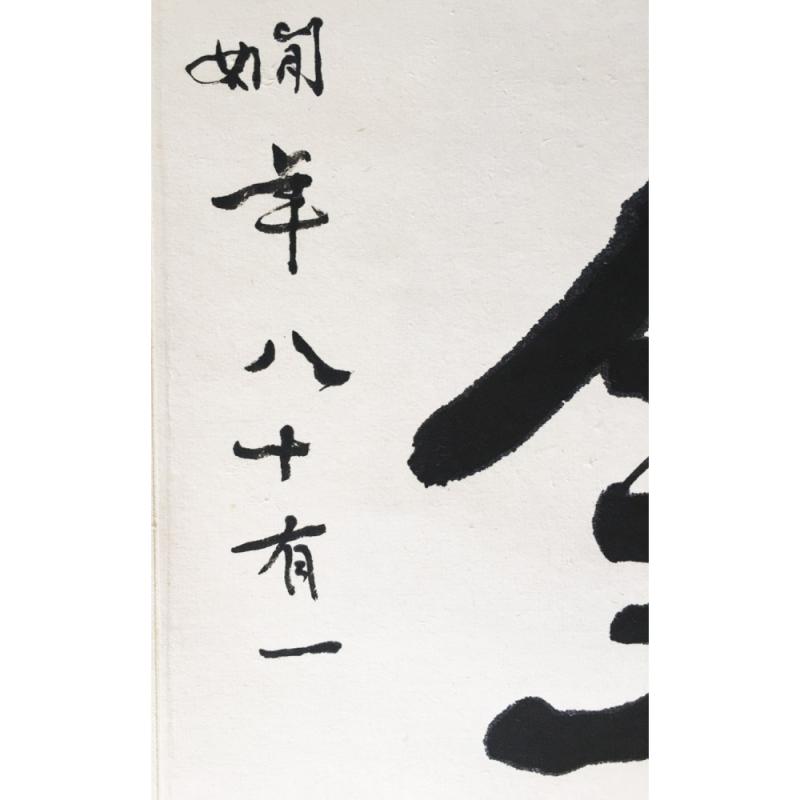 嫺年八十有一